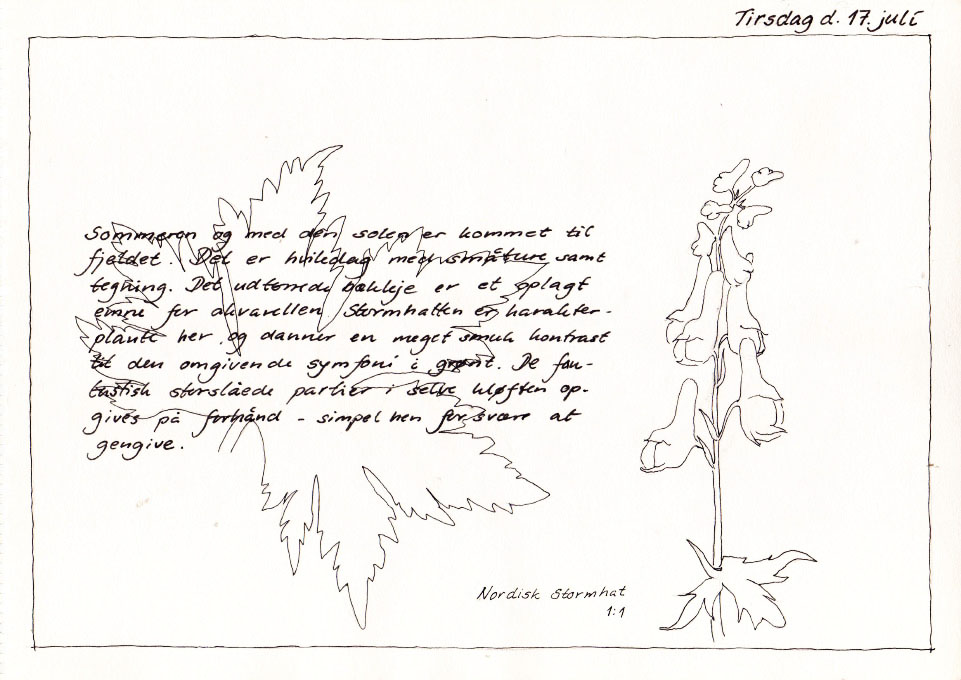 Tirsdag d. 17. juli
Sommeren og med den solen er kommet til
fjeldet. Det er hviledag med småture samt
tegning. Det udtørrede bækleje er et oplagt
emne for akvarellen. Stormhatten er karakter-
plante her og danner en meget smuk kontrast
til den omgivende symfoni i grønt. De fan-
tastisk storslåede partier i selve kløften op-
gives på forhånd - simpelhen for svære at
gengive.
Nordisk Stormhat
1:1